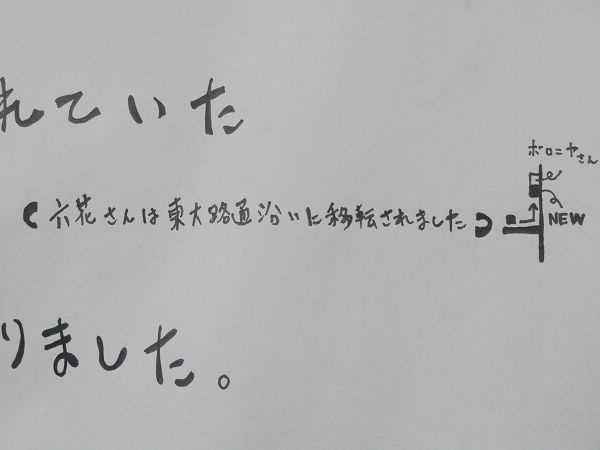 れていた
ボロニヤさん
(六花さんは東大路通沿いに移転されました)
NEW
りました。